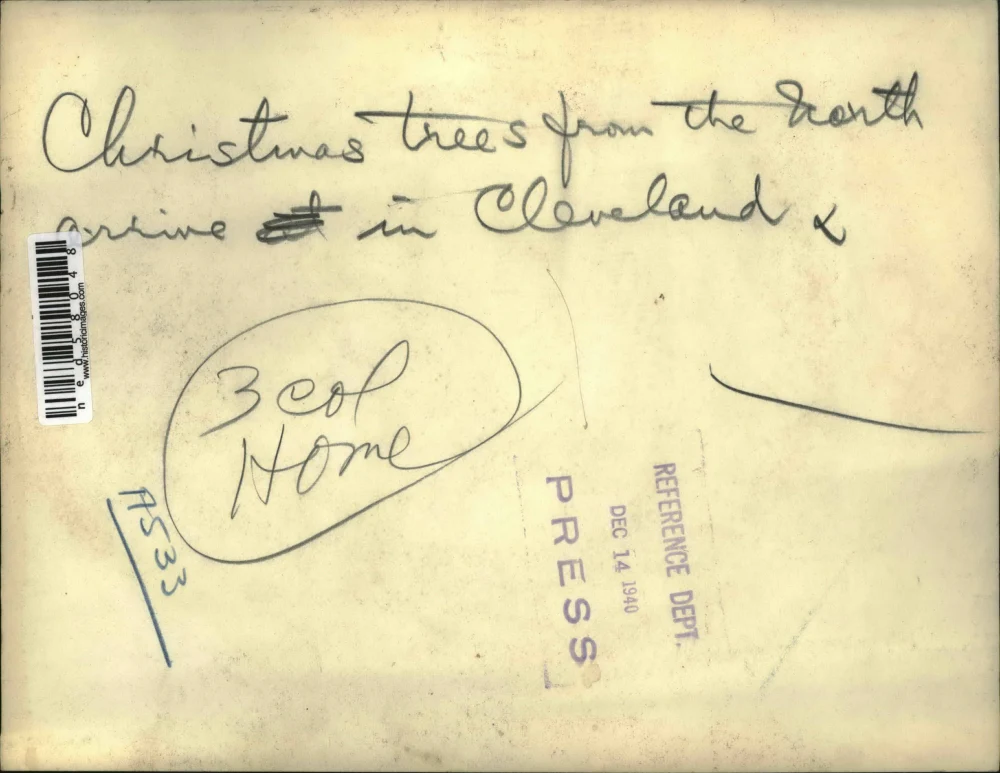 Christmas trees from the North
arrive in Cleveland &
3 col
Home
A533
REFERENCE DEPT.
DEC 14 1940
PRESS
ned58048
www.historicimages.com